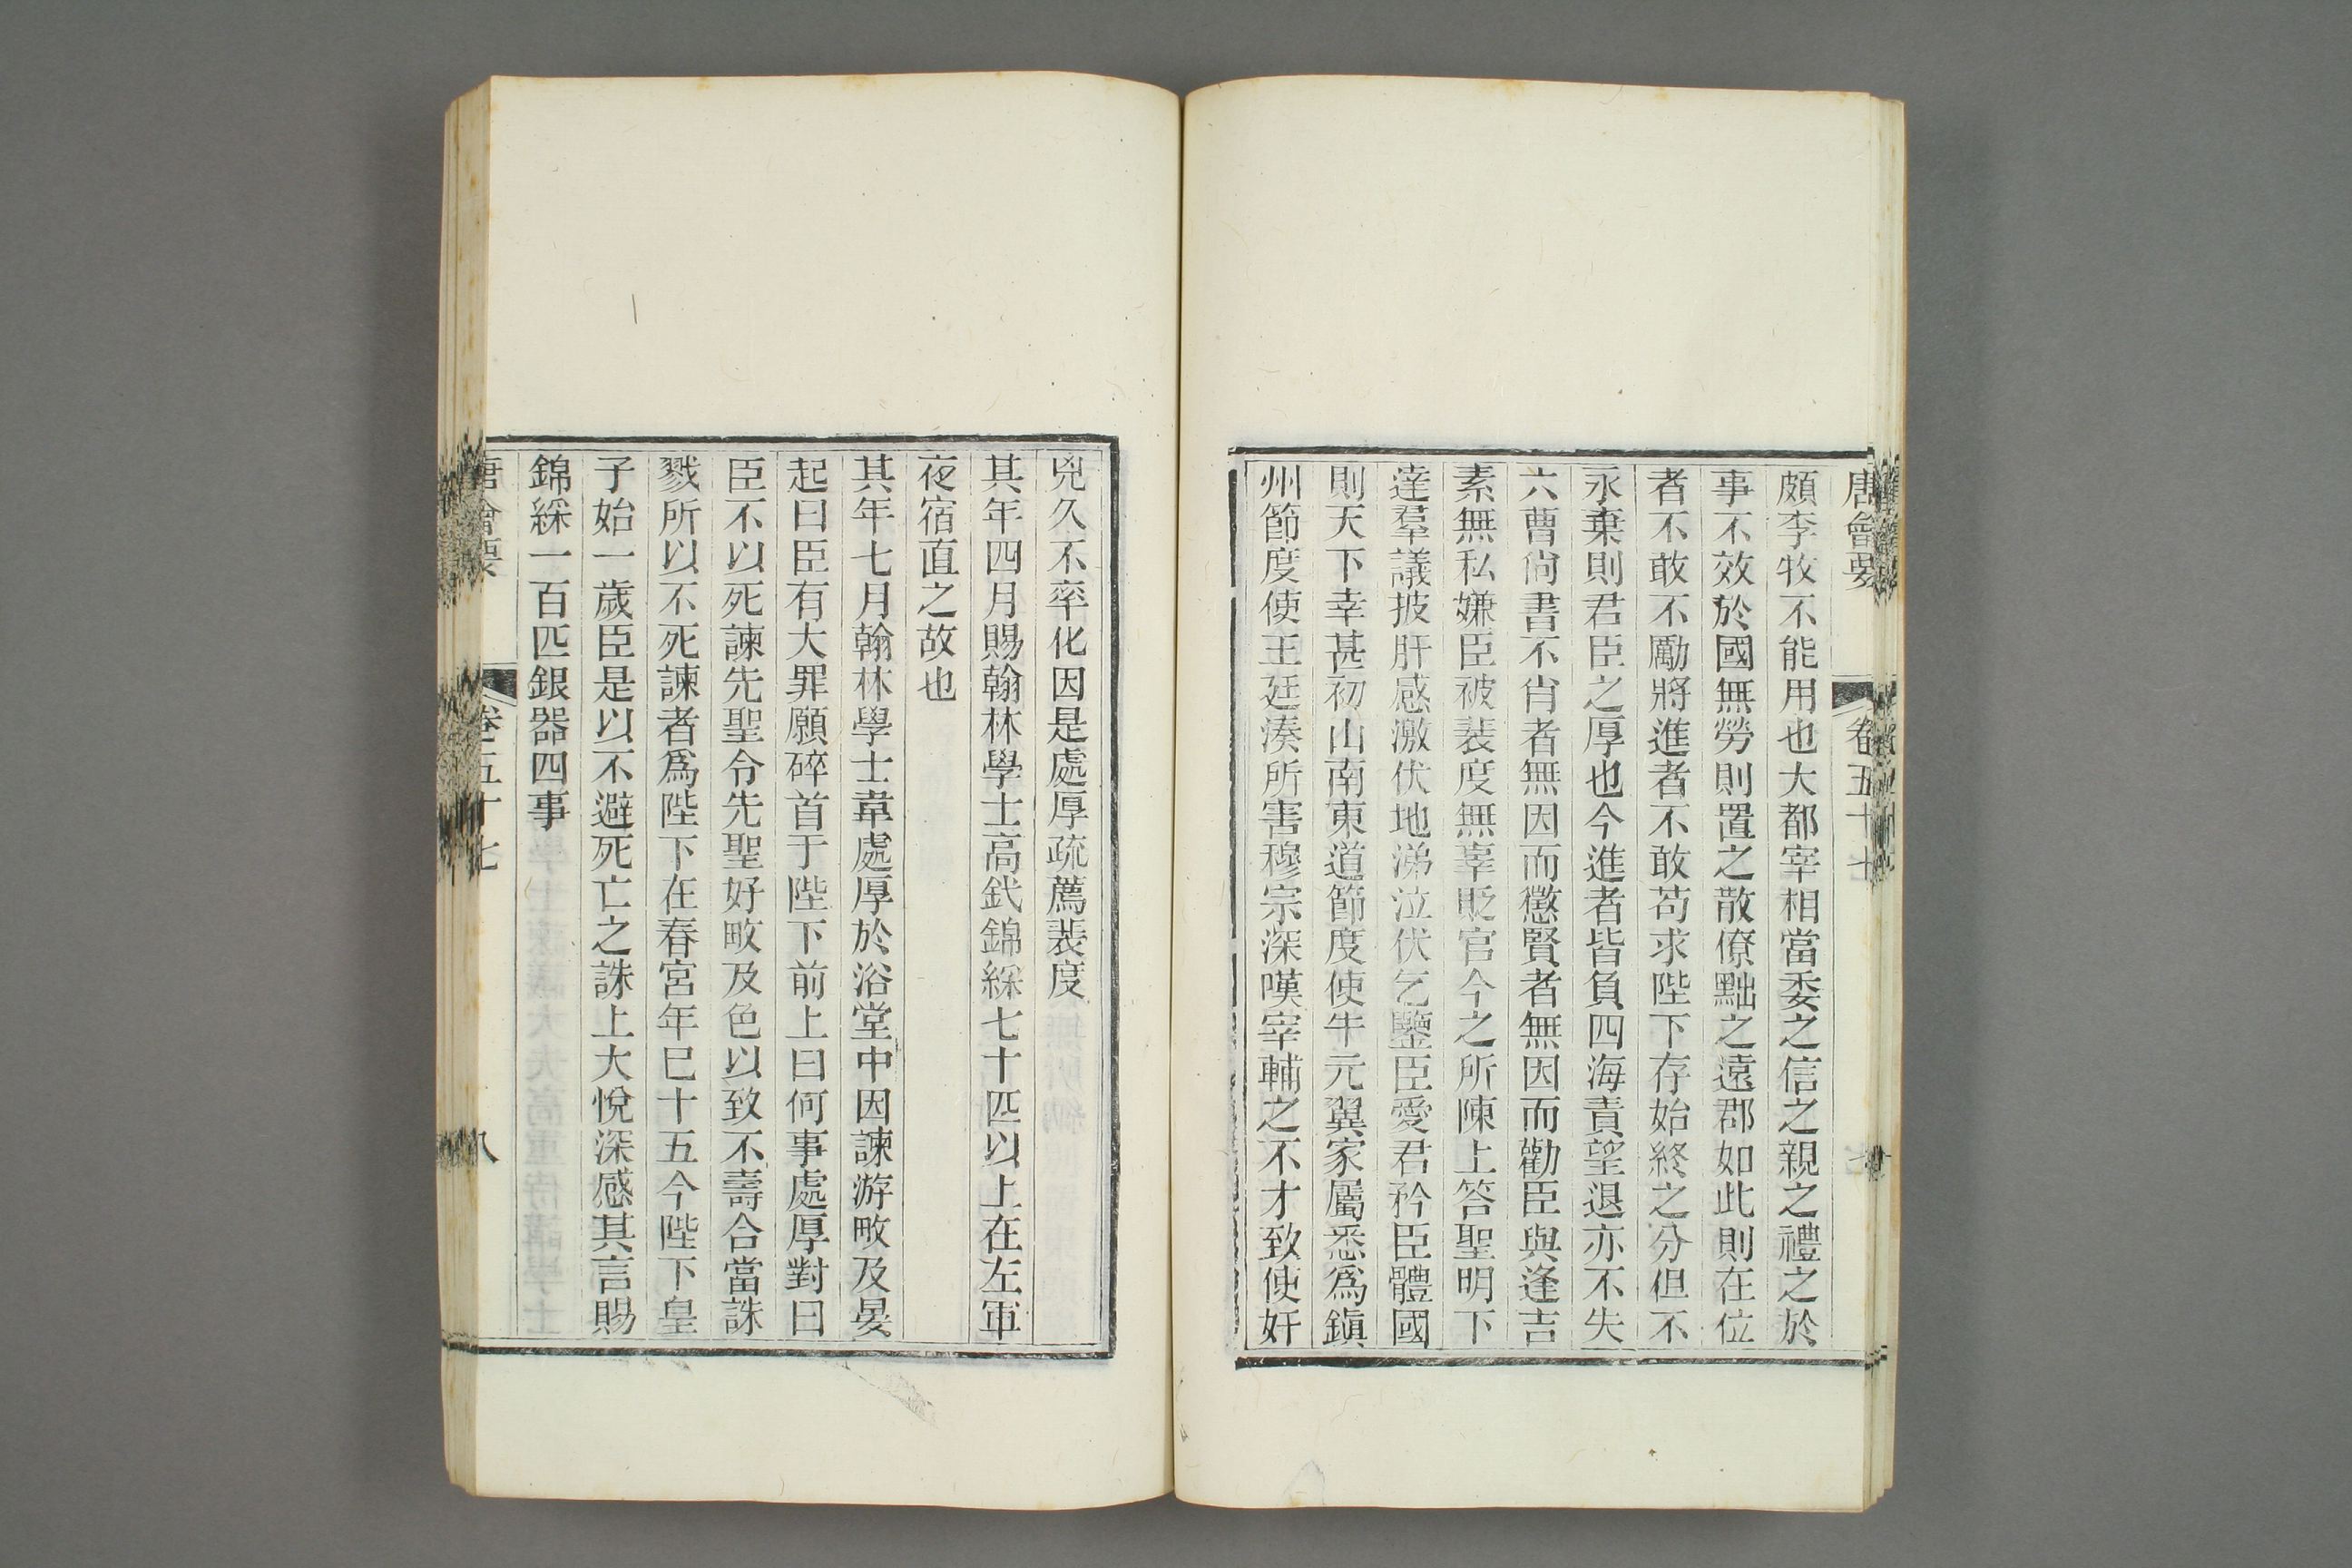 唐會要 卷五十七 七
頗李牧不能用也大都宰相當委之信之親之禮之於
事不效於國無勞則置之散僚黜之遠郡如此則在位
者不敢不勵將進者不敢苟求陛下存始終之分但不
永棄則君臣之厚也今進者皆負四海責望退亦不失
六曹尚書不肖者無因而懲賢者無因而勸臣與逢吉
素無私嫌臣被裴度無辜貶官今之所陳上答聖明下
達羣議披肝感激伏地涕泣伏乞鑒臣愛君矜臣體國
則天下幸甚初山南東道節度使牛元翼家屬悉爲鎭
州節度使王廷湊所害穆宗深嘆宰輔之不才致使奸
兇久不率化因是處厚疏薦裴度
其年四月賜翰林學士高釴錦綵七十匹以上在左軍
夜宿直之故也
其年七月翰林學士韋處厚於浴堂中因諫游畋及晏
起曰臣有大罪願碎首于陛下前上曰何事處厚對曰
臣不以死諫先聖令先聖好畋及色以致不壽合當誅
戮所以不死諫者爲陛下在春宮年巳十五今陛下皇
子始一歲臣是以不避死亡之誅上大悅深感其言賜
錦綵一百匹銀器四事
唐會要 卷五十七 八